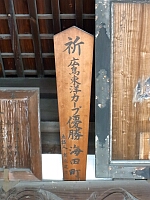 祈 広島東洋カープ優勝 海田町